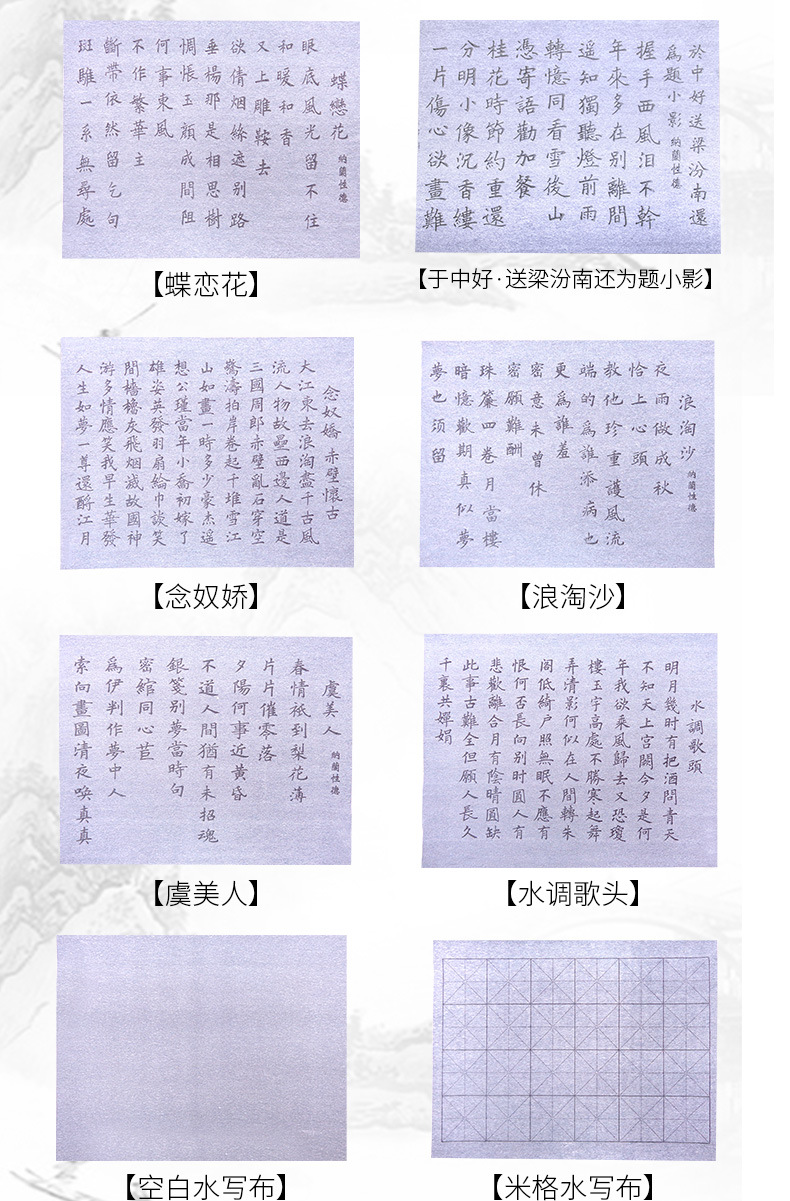 蝶戀花 納蘭性德
眼底風光留不住
和暖和香
又上雕鞍去
欲倩烟絲遮别路
垂楊那是相思樹
惆悵玉顔成間阻
何事東風
不作繁華主
斷帶依然留乞句
斑騅一系無尋處
【蝶恋花】
於中好送梁汾南還
爲題小影 納蘭性德
握手西風泪不幹
年來多在别離間
遥知獨聽燈前雨
轉憶同看雪後山
憑寄語勸加餐
桂花時節約重還
分明小像沉香縷
一片傷心欲畫難
【于中好·送梁汾南还为题小影】
念奴嬌 赤壁懷古
大江東去浪淘盡千古風
流人物故壘西邊人道是
三國周郎赤壁亂石穿空
驚濤拍岸卷起千堆雪江
山如畫一時多少豪杰遥
想公瑾當年小喬初嫁了
雄姿英發羽扇綸巾談笑
間檣櫓灰飛烟滅故國神
游多情應笑我早生華發
人生如夢一尊還酹江月
【念奴娇】
浪淘沙 納蘭性德
夜雨做成秋
恰上心頭
教他珍重護風流
端的爲誰添病也
更爲誰羞
密意未曾休
密願難酬
珠簾四卷月當樓
暗憶歡期真似夢
夢也须留
【浪淘沙】
虞美人 納蘭性德
春情衹到梨花薄
片片催零落
夕陽何事近黄昏
不道人間猶有未招魂
銀箋别夢當時句
密綰同心苣
爲伊判作夢中人
索向畫圖清夜唤真真
【虞美人】
水調歌頭
明月幾时有把酒問青天
不知天上宫闕今夕是何
年我欲乘風歸去又恐瓊
樓玉宇高處不勝寒起舞
弄清影何似在人間轉朱
閣低綺户照無眠不應有
恨何否長向别时圓人有
悲歡離合月有陰晴圓缺
此事古難全但願人長久
千裏共嬋娟
【水调歌头】
【空白水写布】
【米格水写布】